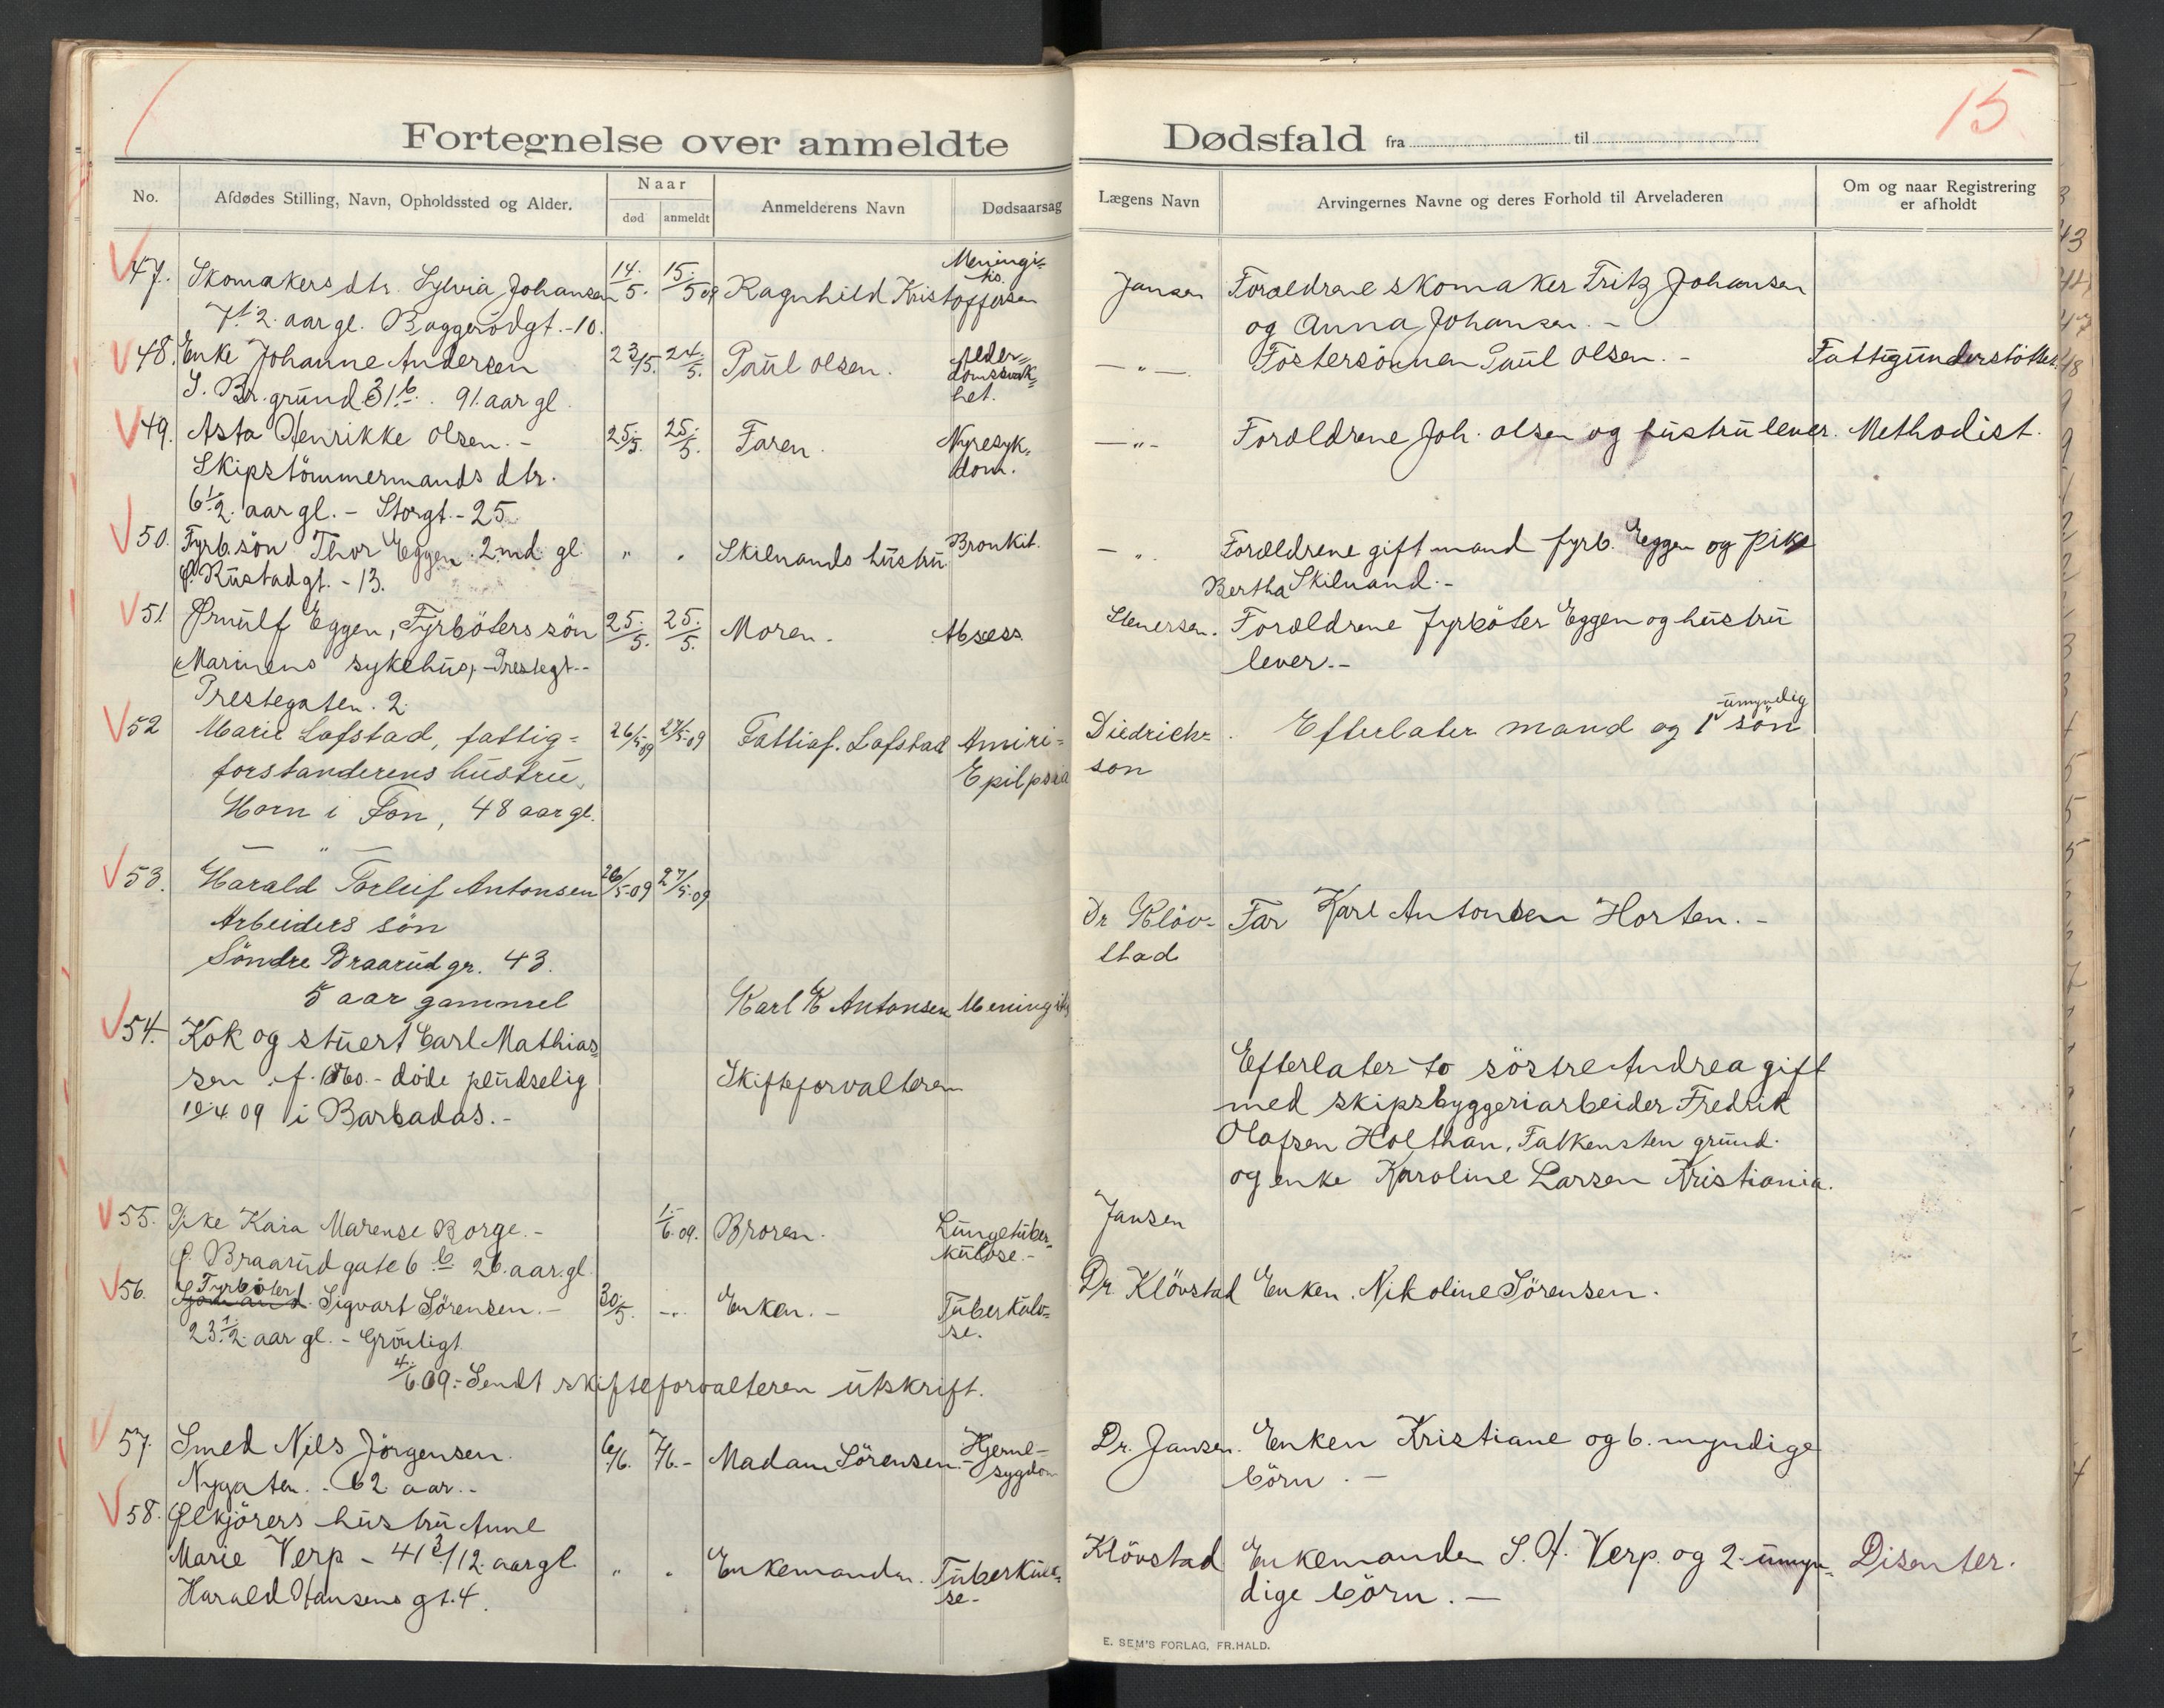 15
Fortegnelse over anmeldte Dødsfald fra til
No.
Afdødes Stilling, Navn, Opholdssted og Alder.
Naar
død
anmeldt
Anmelderens Navn
Dødsaarsag
Lægens Navn
Arvingernes Navne og deres Forhold til Arveladeren
Om og naar Registrering
er afholdt
47. Skomakers dtr. Sylvia Johansen 14./5. 15./5 09 Ragnhild Kristoffersen Meningi-
tis
Jansen Foræeldrene skomaker Fritz Johansen
7 1/2. aar gl. Baggerödgt. - 10.
og Anna Johansen. -
48. Enke Johanne Andersen 23/5. 24./5. Paul Olsen. Alder-
domssvak-
het.
— " — Föstersönnen Paul Olsen. - Fattigunderstöttet.
S. Br. grund 31 b. 91. aar gl.
49. Asta Henrikke Olsen. - 25./5. 25./5. Faren. Nyresyk-
dom.
— " - Foræeldrene Joh. Olsen og hustru lever. Methodist.
Skipstömmermands dtr.
6 1/2. aar gl. - Storgt. - 25
50. Fyrb. sön Thor Eggen. 2. md. gl. " " Skilnands hustru Bronkit.
— " Foræeldrene gift mand fyrb. Eggen og pike
Ø. Rustadgt. - 13.
Bertha Skilnand. -
51 Ørnulf Eggen, Fyrböters sön 25./5. 25./5. Moren. Absess
Stenersen. Foræeldrene fyrböter Eggen og hustru
Marinens sykehus, - Prestegt. -
lever. -
Prestegaten. 2
52 Marie Lofstad, fattig- 26/5-09 27/5-09 Fattigf. Lofstad
Epilpsia
Diedrich-
son
Efterlater mand og 1 umyndig sön
forstanderens hustru,
Horn i Fon, 48 aar gl.
53. Harald Torleif Antonsen 26/5-09 27/5-09
Arbeiders sön
Söndre Braarud gr. 43.
5 aar gammel
Karl K Antonsen Meningitis
Dr Klöv-
stad
Far Karl Antonsen Horten. -
54. Kok og stuert Carl Mathias-
sen f. 1860. - döde pludselig
10/4 09 i Barbadas. -
Skifteforvalteren
Efterlater to söstre Andrea gift
med skipsbyggeriarbeider Fredrik
Olafsen Holthan, Falkensten grund.
og enke Karoline Larsen Kristiania.
55. Pike Kaia Marense Borge. - 1./6. 09. Broren. Lungetuber-
kulose. -
Jansen
Ø. Braarud gate 6 b. 26. aar. gl.
56. Fyrböter Sigvart Sörensen. - 30./5. -.. Enken. - Tuberkulo-
se.
Dr. Klövstad Enken. Nikoline Sörensen.
23 1/2. aar gl. - Grönligt.
4./6. 09. - Sendt skifteforvalteren utskrift.
57. Smed Nils Jörgensen. 6/6. 7/6. - Madam Sörensen. Hjerne-
sygdom
Dr. Jansen. Enken Kristiane og 6. myndige
börn. —
Nygaten. - 62. aar. -
58. Ølkjörers hustru Anne
Marie Verp - 41 3/12. aar gl. " " Enkemanden. Tuberkulo-
se -
Klövstad Enkemanden S. H. Verp. og 2. umyn-
dige börn. —
Disenter.
Harald Hansens gt. 4.
E. SEM'S FORLAG, FR.HALD.